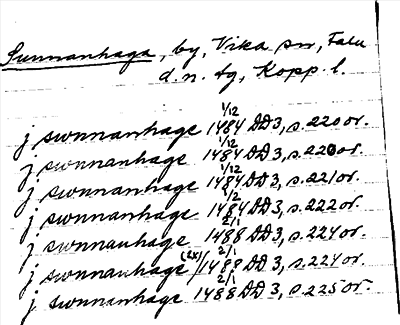 Sunnanhaga, by, Vika sn, Falu
d. n. tg, Kopp. l.
j swnnanhage 1/12 1484 DD 3, s. 220 or.
j swnnanhage 1/12 1484 DD 3, s. 220 or.
j swnnanhage 1/12 1484 DD 3, s. 221 or.
j swnnanhage 1/12 1484 DD 3, s. 222 or.
j swnnanhage 2/1 1488 DD 3, s. 224 or.
j swnnanhage (2x) / 2/1 1488 DD 3, s. 224 or.
j swnnanhage 2/1 1488 DD 3, s. 225 or.